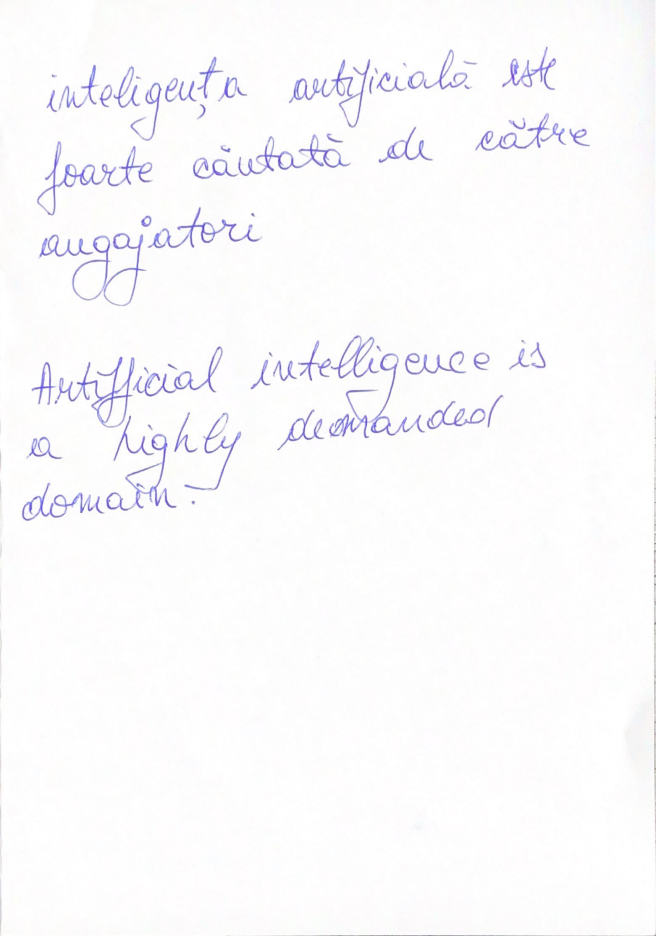 inteligența artificială este
foarte căutată de către
angajatori
Artifficial intelligence is
a highly demanded
domain.